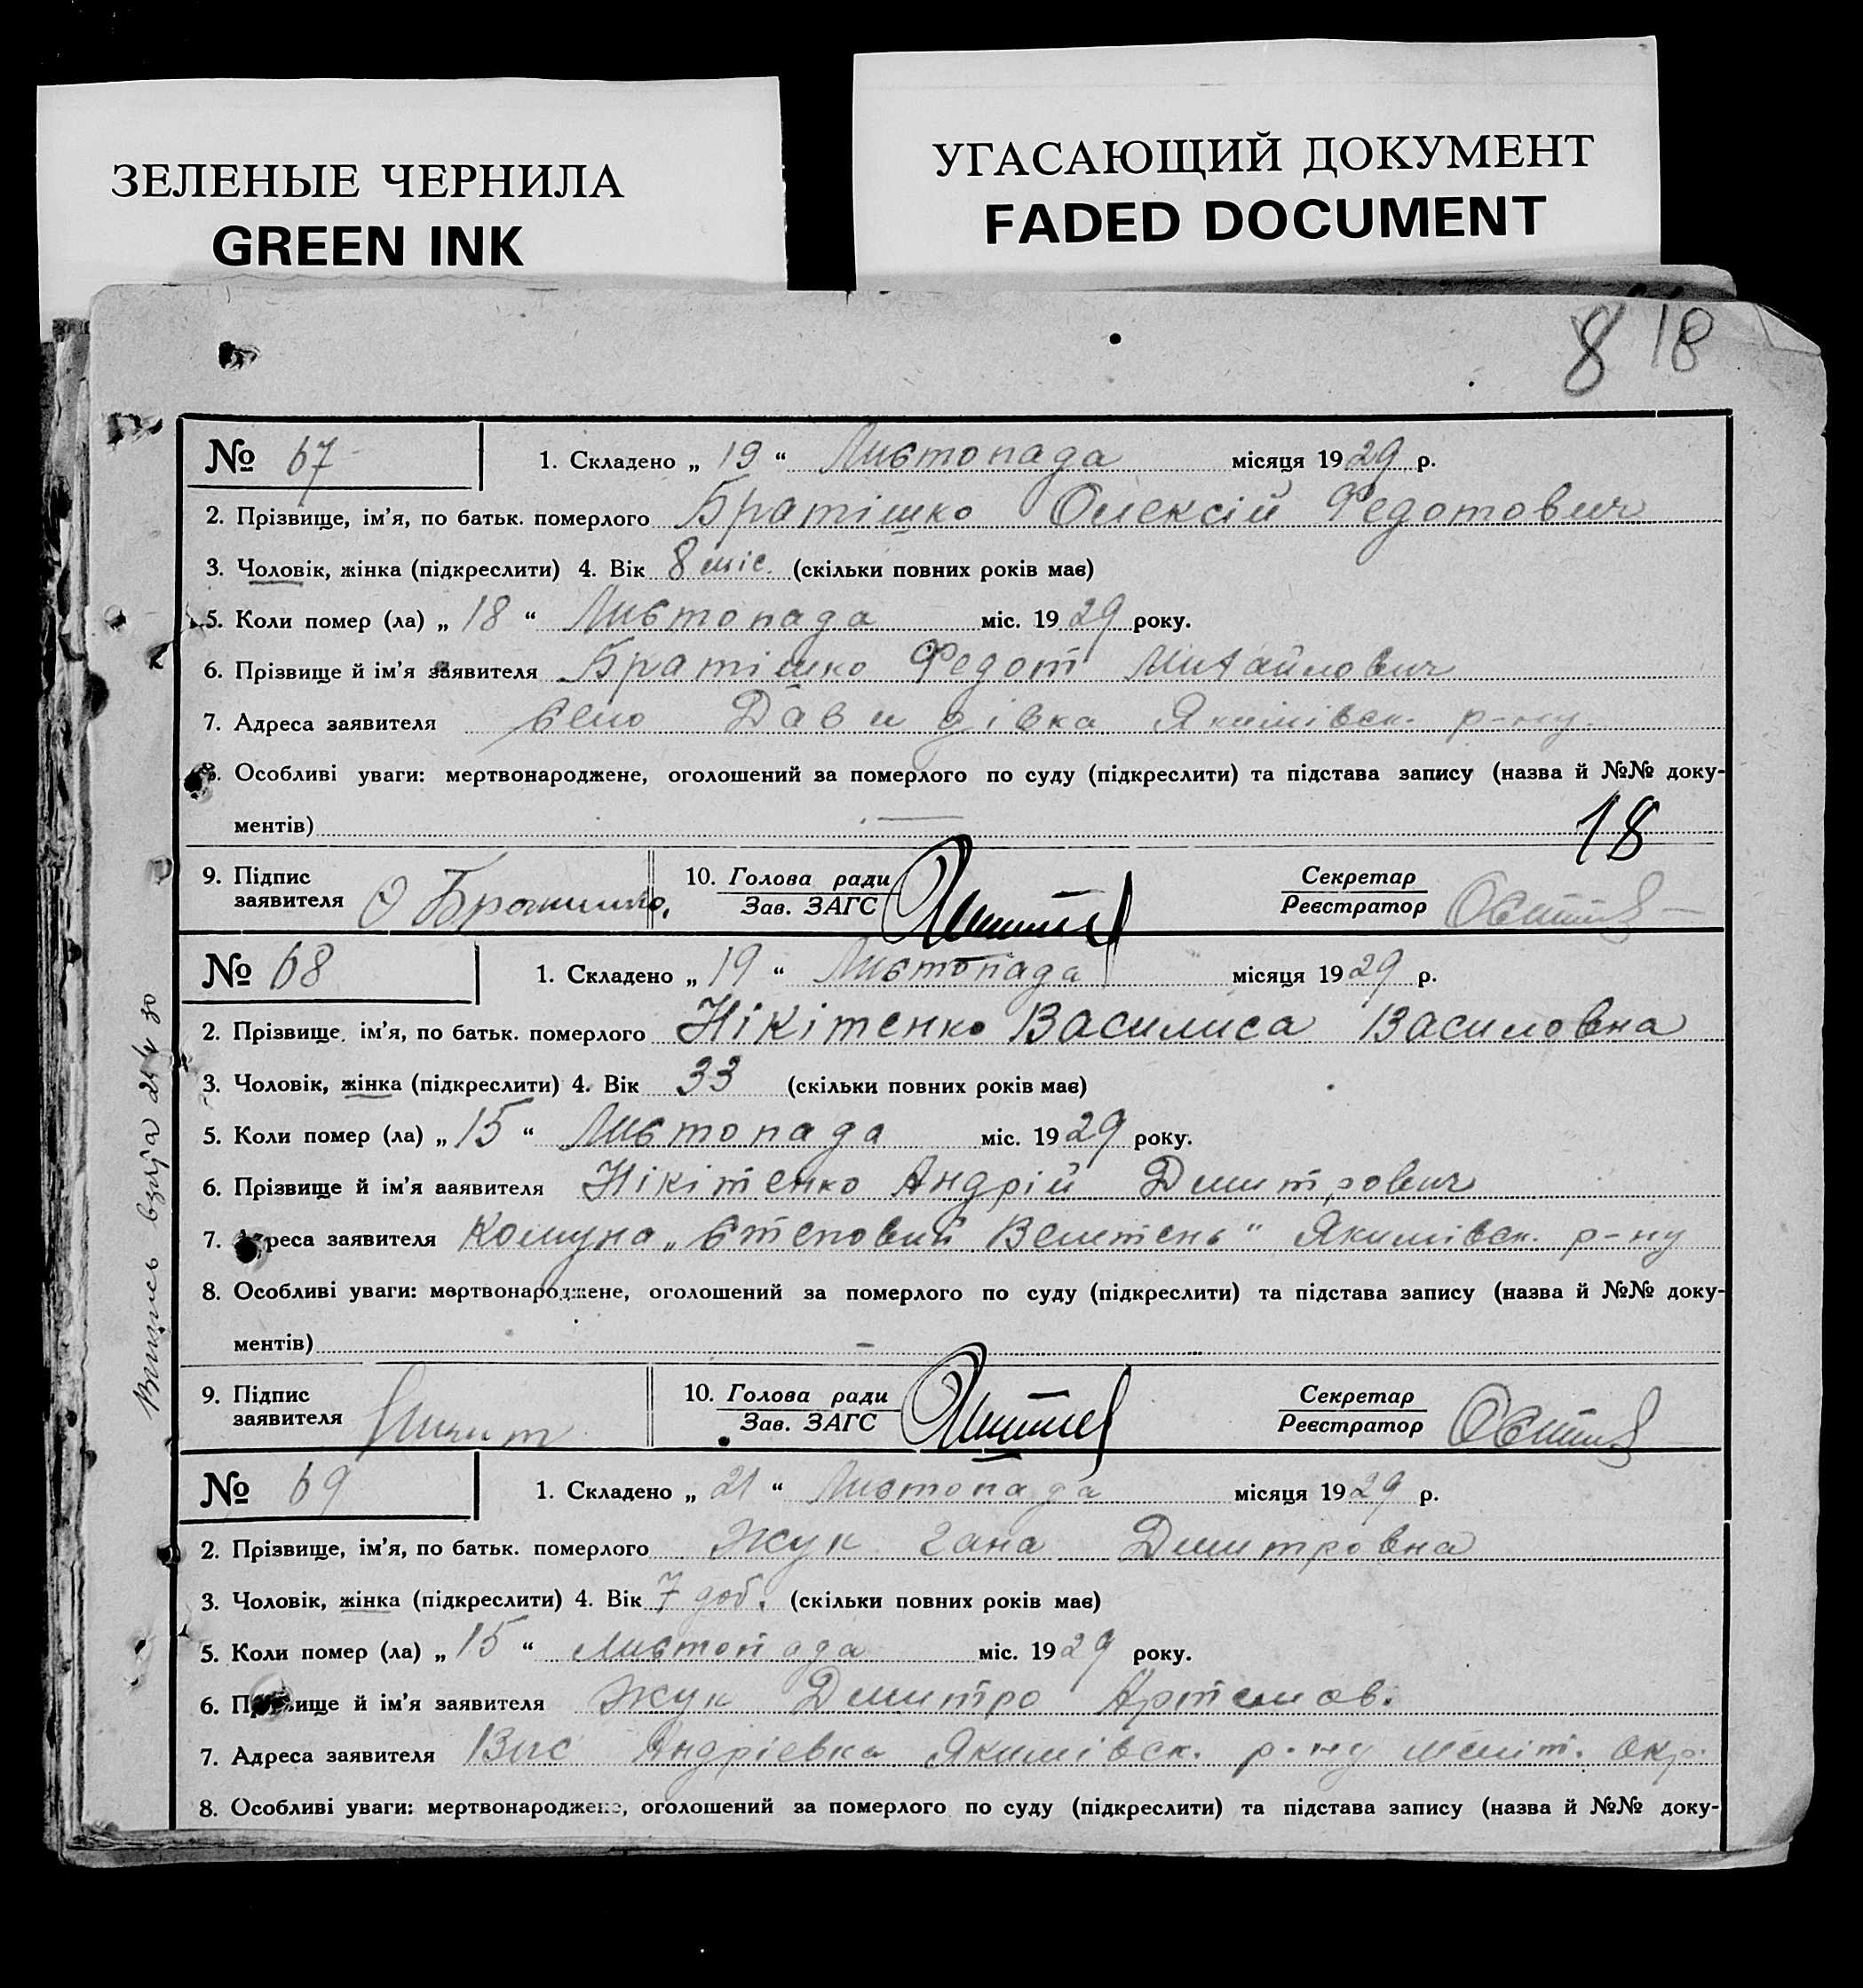 ЗЕЛЕНЫЕ ЧЕРНИЛА
GREEN INK
УГАСАЮЩИЙ ДОКУМЕНТ
FADED DOCUMENT
8 18
№ 67 1. Складено „ 19 “ Листопада місяця 1929 р.
2. Прізвище, ім’я, по батьк. померлого Братішко Олексій Федотович
3. Чоловік, жінка (підкреслити) 4. Вік 8 міс. (скільки повних років має)
5. Коли помер (ла) „ 18 “ Листопада міс. 1929 року.
6. Прізвище й ім’я заявителя Братішко Федот Михайлович
7. Адреса заявителя село Давидівка Якимівск. р-ну.
8. Особливі уваги: мертвонароджене, оголошений за померлого по суду (підкреслити) та підстава запису (назва й №№ доку-
ментів) 18
9. Підпис заявителя 10. Голова ради Зав. ЗАГС Секретар Реєстратор
№ 68 1. Складено „ 19 “ Листопада місяця 1929 р.
2. Прізвище, ім’я, по батьк. померлого Нікітенко Василиса Василовна
3. Чоловік, жінка (підкреслити) 4. Вік 33 (скільки повних років має)
5. Коли помер (ла) „ 15 “ Листопада міс. 1929 року.
6. Прізвище й ім’я заявителя Нікітенко Андрій Дмитрович
7. Адреса заявителя Комуна „Степовий Велетень“ Якимівск. р-ну
8. Особливі уваги: мертвонароджене, оголошений за померлого по суду (підкреслити) та підстава запису (назва й №№ доку-
ментів) –
9. Підпис заявителя 10. Голова ради Зав. ЗАГС Секретар Реєстратор
№ 69 1. Складено „ 21 “ Листопада місяця 1929 р.
2. Прізвище, ім’я, по батьк. померлого Жук Гана Дмитровна
3. Чоловік, жінка (підкреслити) 4. Вік 7 доб. (скільки повних років має)
5. Коли помер (ла) „ 15 “ Листопада міс. 1929 року.
6. Прізвище й ім’я заявителя Жук Дмитро Артемов.
7. Адреса заявителя Вис Андріевка Якимівск. р-ну меліт. окр.
8. Особливі уваги: мертвонароджене, оголошений за померлого по суду (підкреслити) та підстава запису (назва й №№ доку-